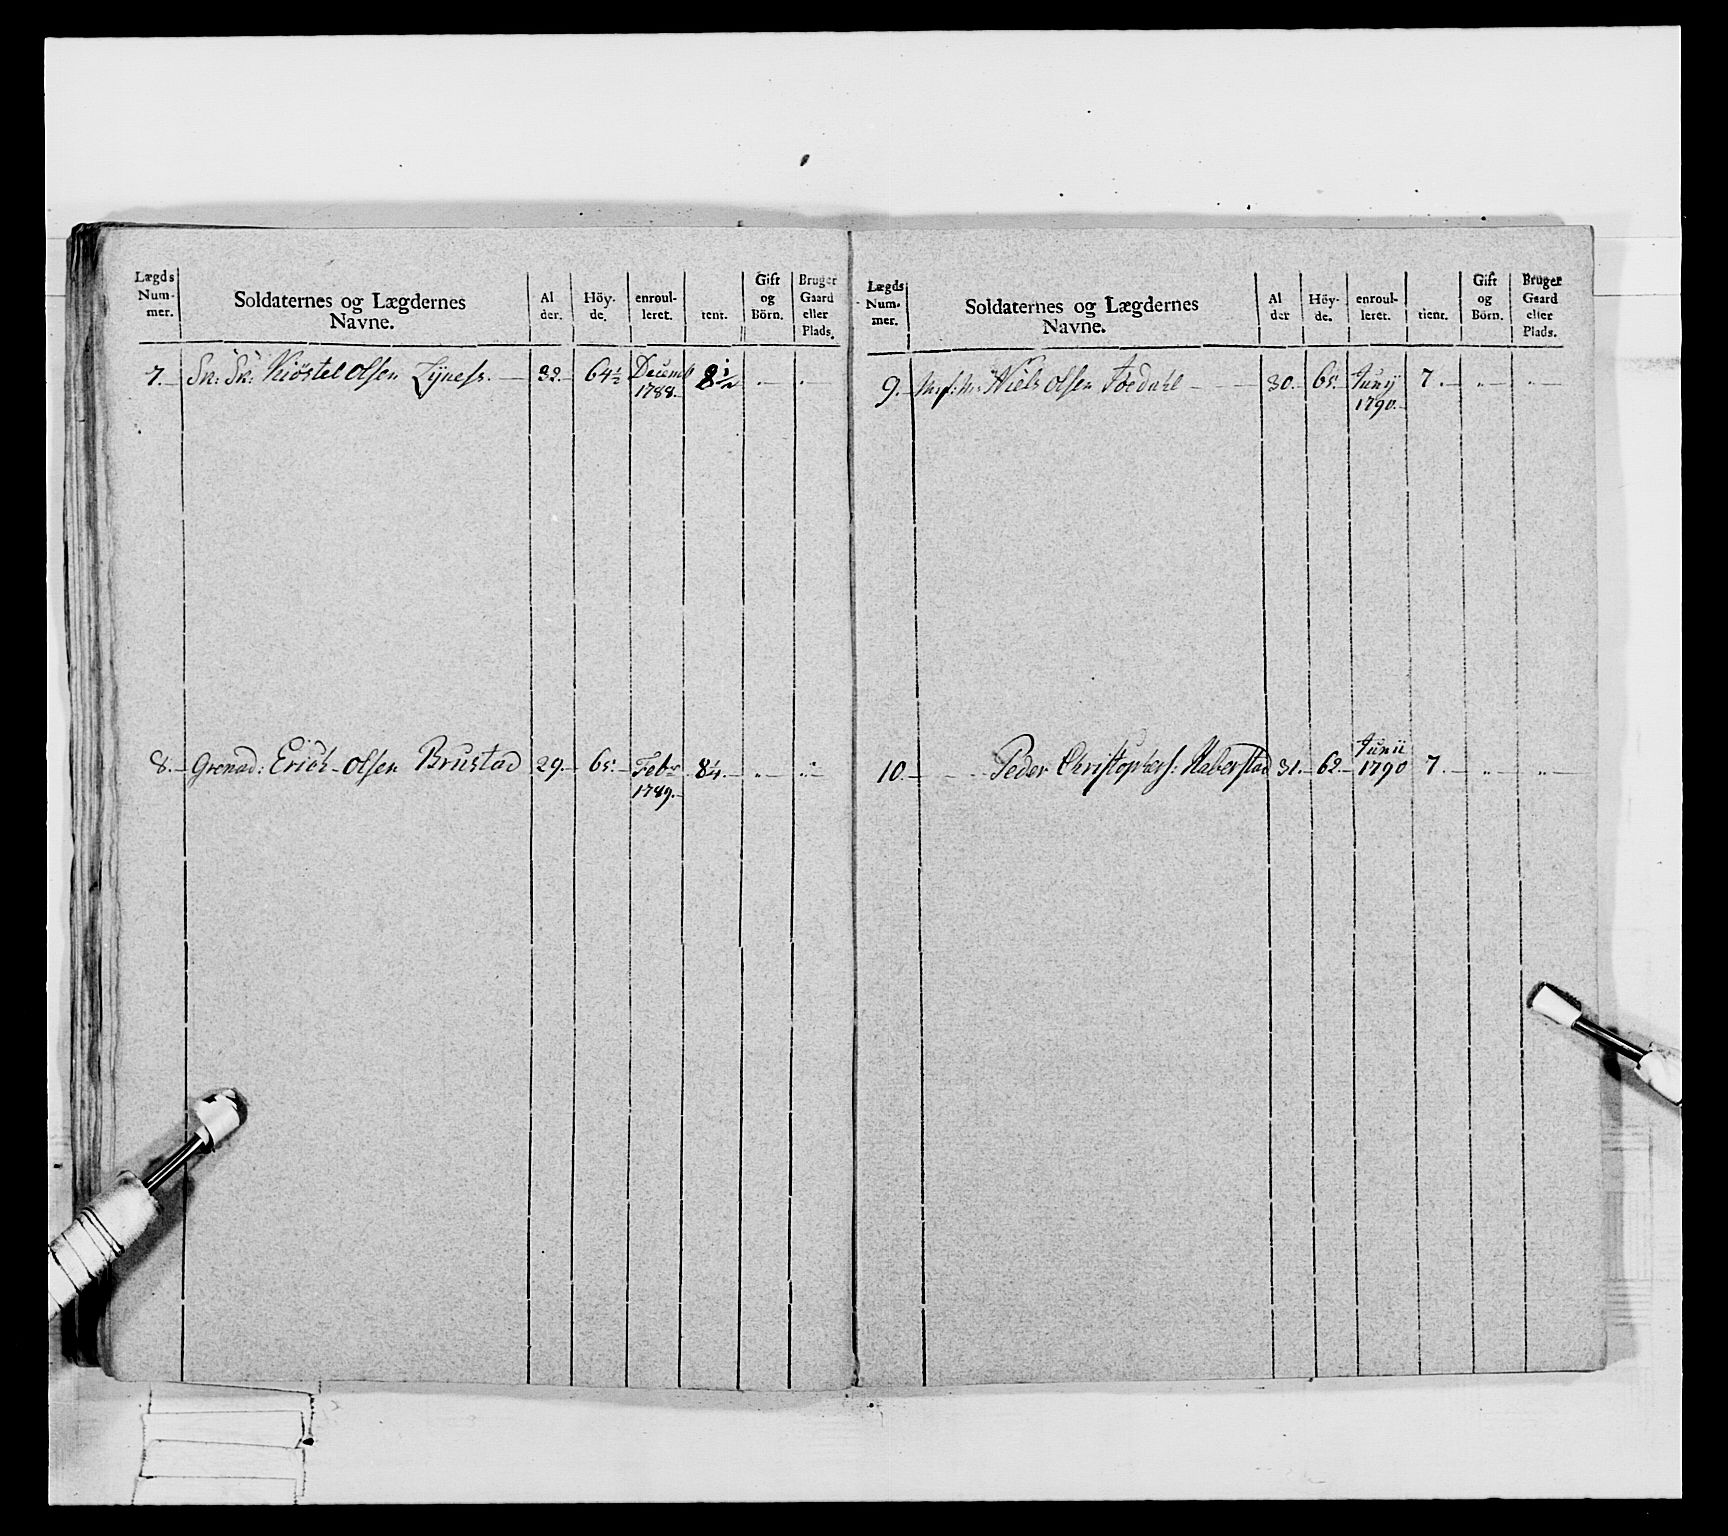 Lægds Num- mer. Soldaternes og Lægdernes Navne. Al der. Höy- de. enroul- leret. tient. Gift og Börn. Bruger Gaard eller Plads.
7.— Kiöstel Olsen 32.— 64½ Decemb 1788.— 8½ „— „—
8.— Grenad: Erich Olsen Brustad 29.— 65.— Febr 1789.— 8¼.— „— „—
Lægds Num- mer. Soldaternes og Lægdernes Navne. Al der Höy- de. enroul- leret. tient. Gift og Börn. Bruger Gaard eller Plads.
9.— Niels Olsen 30.— 65.— Junij 1790.— 7.— „— „—
10.— Peder Christophers: Haberstad 31.— 62.— Junii 1790 7.— „— „—